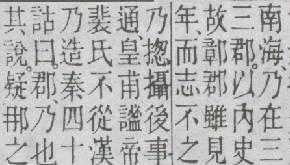 南海、乃在三
三郡。以内史
故鄣郡雖見
年、而志不之
乃揔攝後事
通皇甫謐帝
裴氏不從漢
乃造秦四十
詁曰、郡乃也
其說疑邢之